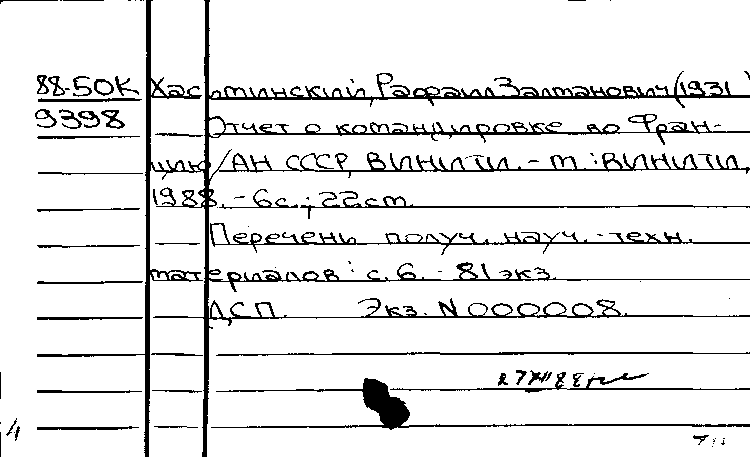 88-50К Хасьминский, Рафаил Залманович (1931
9398 Отчет о командировке во Фран-
цию / АН СССР, ВИНИТИ. - М.: ВИНИТИ,
1988. - 6с.; 22см.
Перечень получ. науч.-техн.
материалов: с. 6. - 81 экз.
ДСП. Экз. N 000008.
4